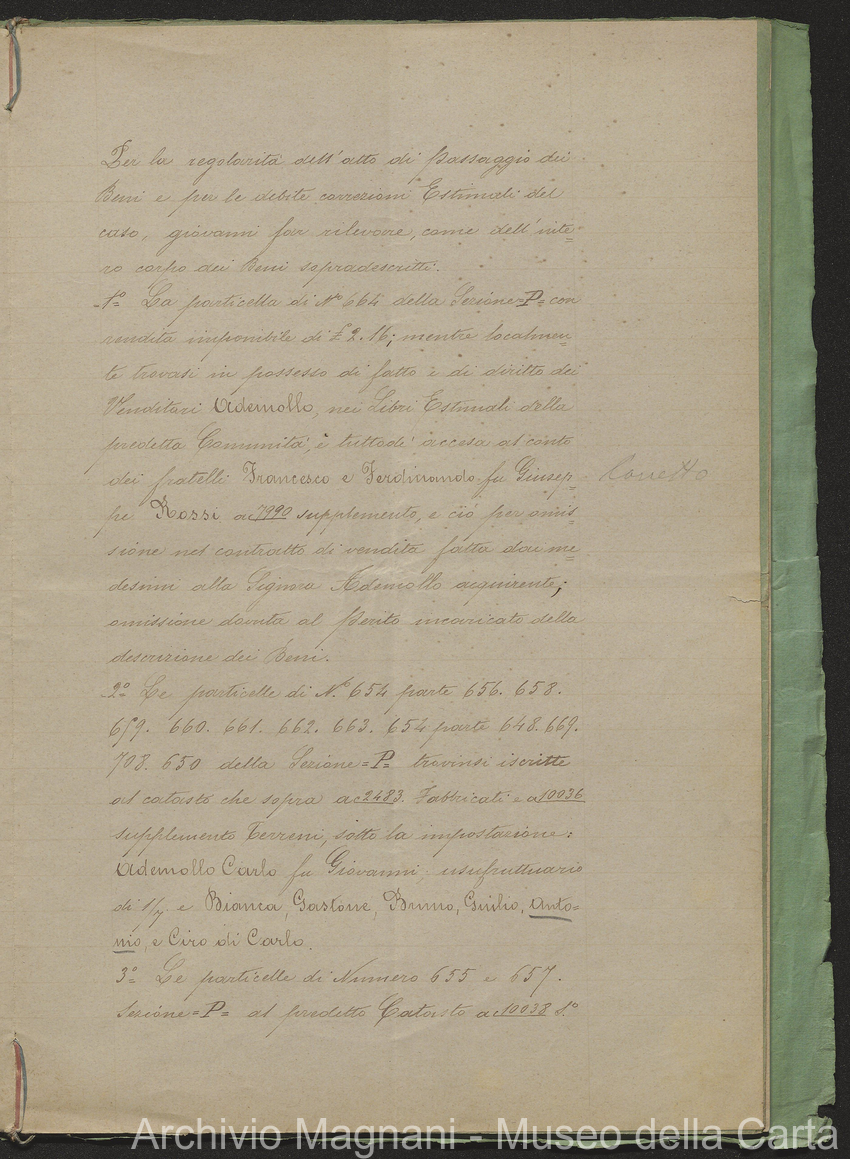 Per la regolarità dell'atto di passaggio dei
Beni e per le debite correzioni Estimali del
caso, giovanni far rilevare, come dell'inte=
ro corpo dei Beni sopradescritti:
1º= La particella di Nº 664 della Sezione =P= con
rendita imponibile di £ 2.16; mentre localmen=
te trovasi in possesso di fatto e di diritto dei
Venditori Ademollo, nei Libri Estimali della
predetta Comunità, è tuttodì accesa al conto
dei fratelli Francesco e Ferdinando fu Giusep=
pe Rossi a c 7990 supplemento, e ciò per omis=
sione nel contratto di vendita fatta dai me=
desimi alla Signora Ademollo acquirente;
omissione dovuta al Perito incaricato della
descrizione dei Beni.
2º= Le particelle di Nº 654 parte 656. 658.
659. 660. 661. 662. 663. 654 parte 648. 669.
708. 650 della Sezione =P= trovinsi iscritte
al catasto che sopra a c 2483. Fabbricati e a 10036
supplemento Terreni, sotto la impostazione:
Ademollo Carlo fu Giovanni, usufruttuario
di 1/7. e Bianca, Gastone, Bruno, Giulio, Anto=
nio, e Ciro di Carlo.
3º= Le particelle di Numero 655 e 657.
Sezione =P= al predetto Catasto a c 10038 S.º
Archivio Magnani - Museo della Carta